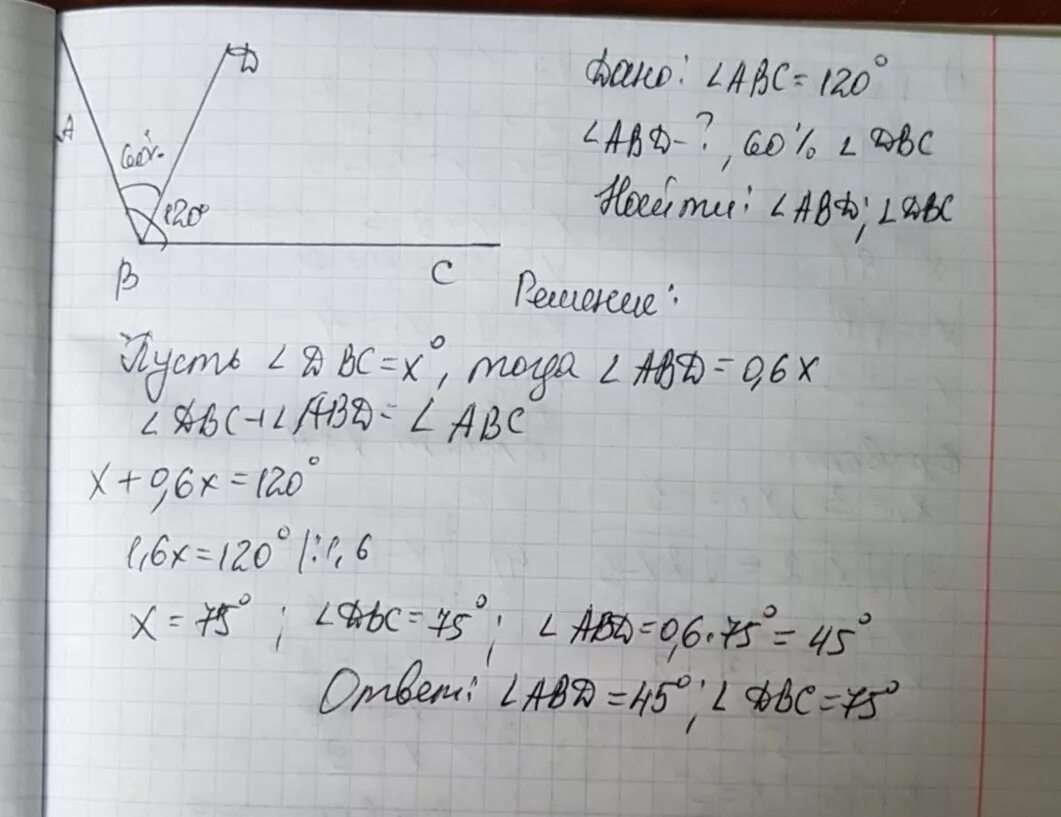 D
Дано: ∠ABC = 120°
A
60%
∠ABD - ?, 60% ∠ DBC
120°
Найти: ∠ABD; ∠DBC
B
C
Решение:
Пусть ∠DBC = x°, тогда ∠ABD = 0,6x
∠DBC + ∠ABD = ∠ABC
x + 0,6x = 120°
1,6x = 120° |:1,6
x = 75° ; ∠DBC = 75° ; ∠ABD = 0,6·75° = 45°
Ответ: ∠ABD = 45°; ∠DBC = 75°